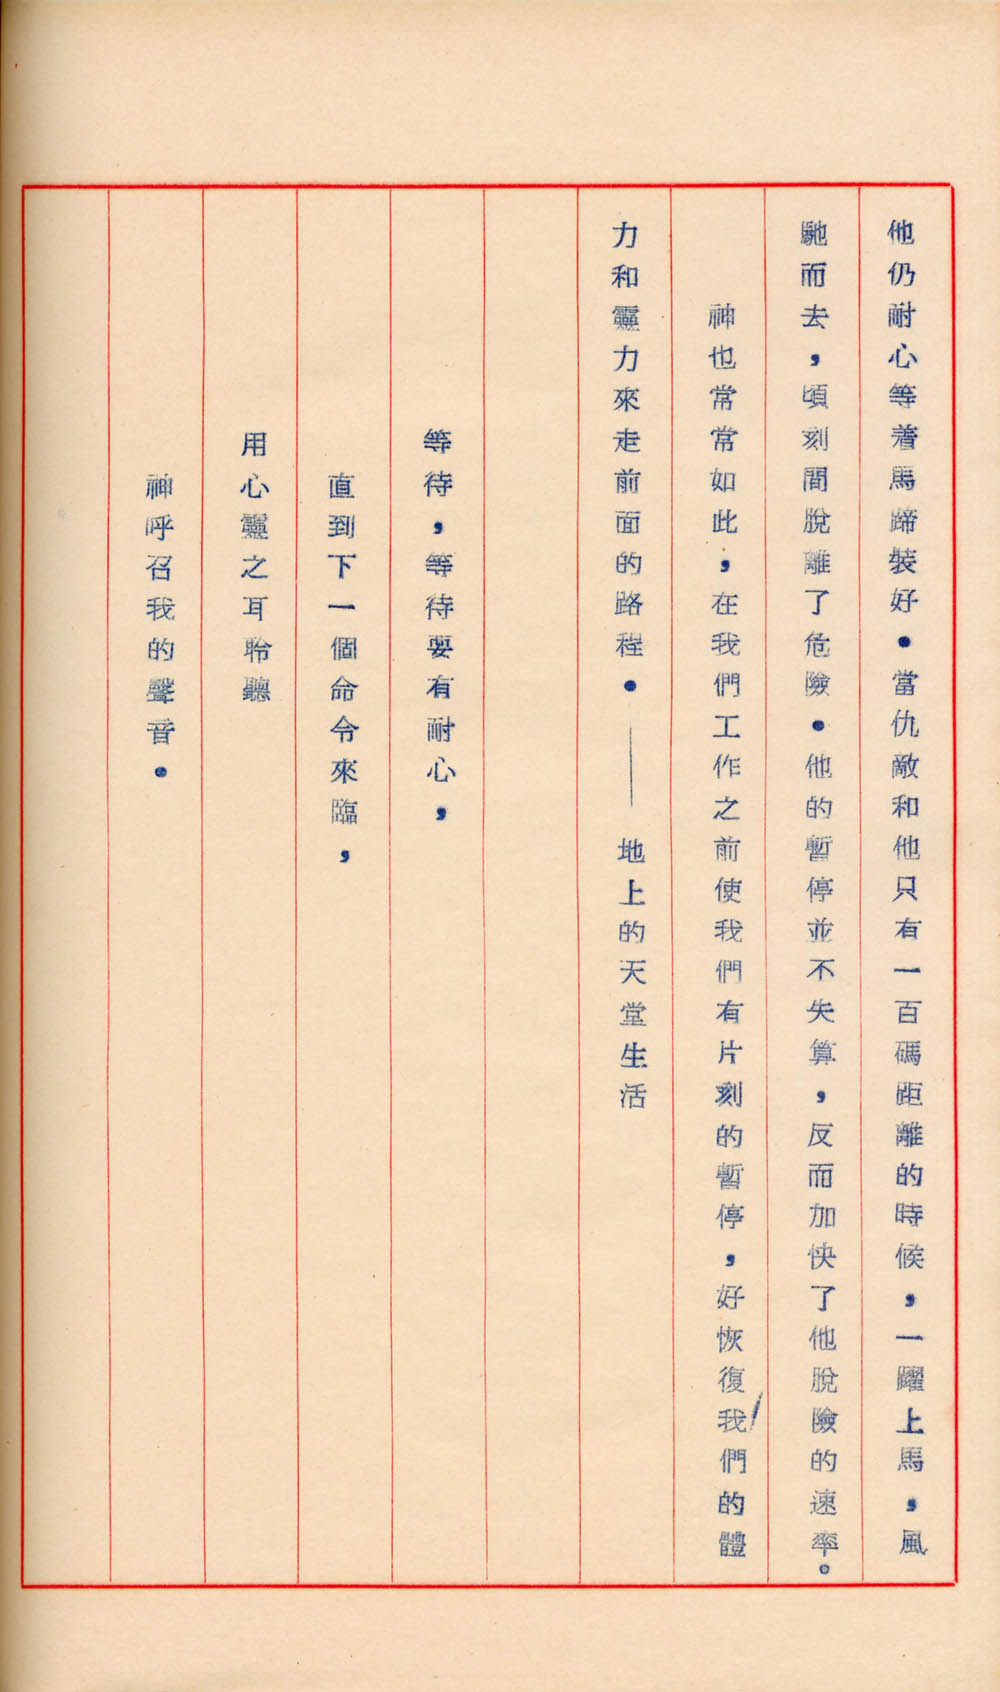 他仍耐心等着馬蹄裝好．當仇敵和他只有一百碼距離的時候，一躍上馬，風
馳而去，頃刻間脫離了危險．他的暫停並不失算，反而加快了他脫險的速率。
神也常常如此，在我們工作之前使我們有片刻的暫停，好恢復我們的體
力和靈力來走前面的路程．——地上的天堂生活
等待，等待要有耐心，
直到下一個命令來臨，
用心靈之耳聆聽
神呼召我的聲音．